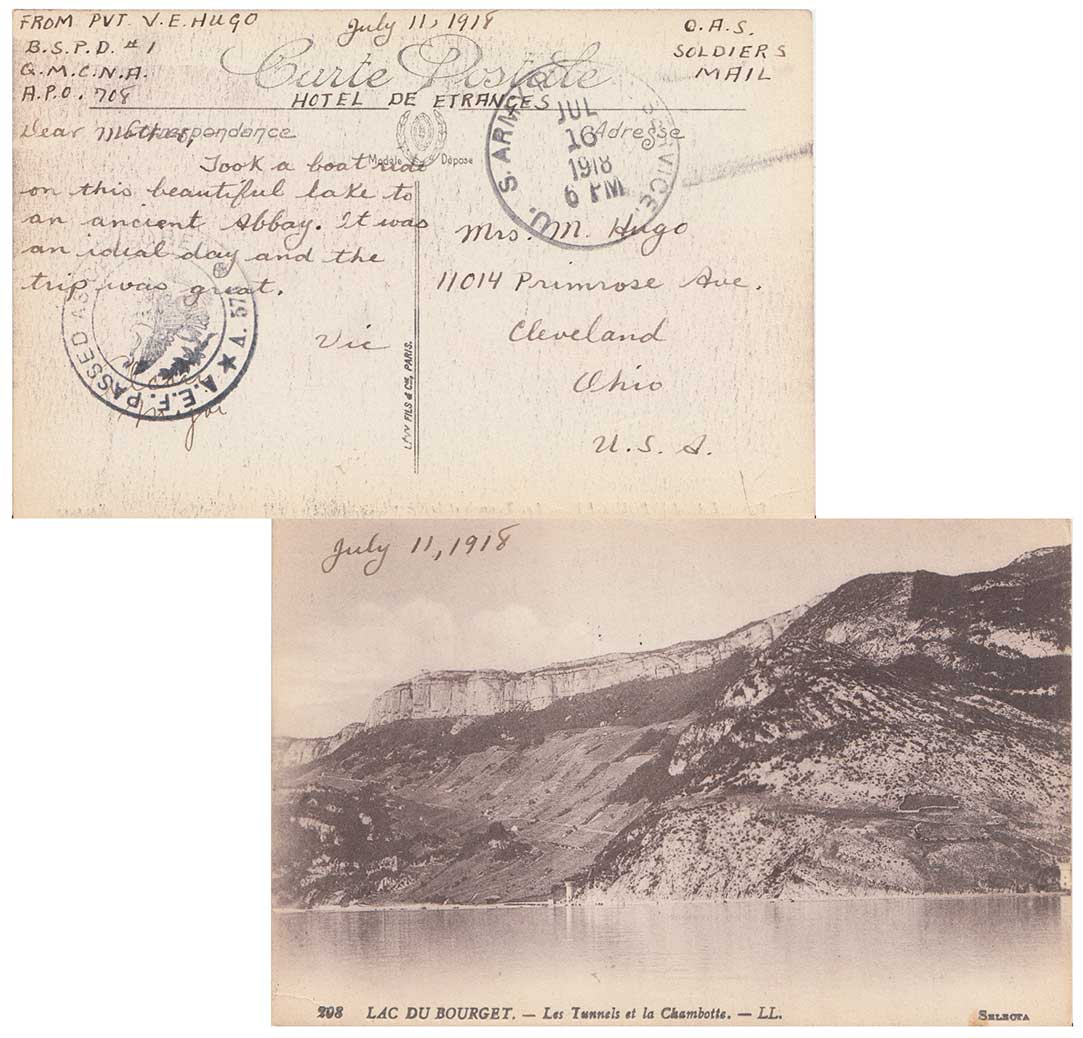 FROM PVT. V. E. HUGO
B.S.P.D. #1
Q.M.C.N.A.
A.P.O. 708
July 11, 1918
O.A.S.
SOLDIERS
MAIL
Carte Postale
HOTEL DE ETRANGES
Correspondance
Adresse
Modèle Déposé
Dear Mother,
Took a boat ride
on this beautiful lake to
an ancient Abbay. It was
an ideal day and the
trip was great.
Vic
U. S. ARMY SERVICE.
JUL
16
1918
6 PM
Mrs. M. Hugo
11014 Primrose Ave.
Cleveland
Ohio
U. S. A.
A.E.F. PASSED AS
LÉVY FILS & Cie, PARIS.
July 11, 1918
298 LAC DU BOURGET. — Les Tunnels et la Chambotte. — LL.
SELECTA